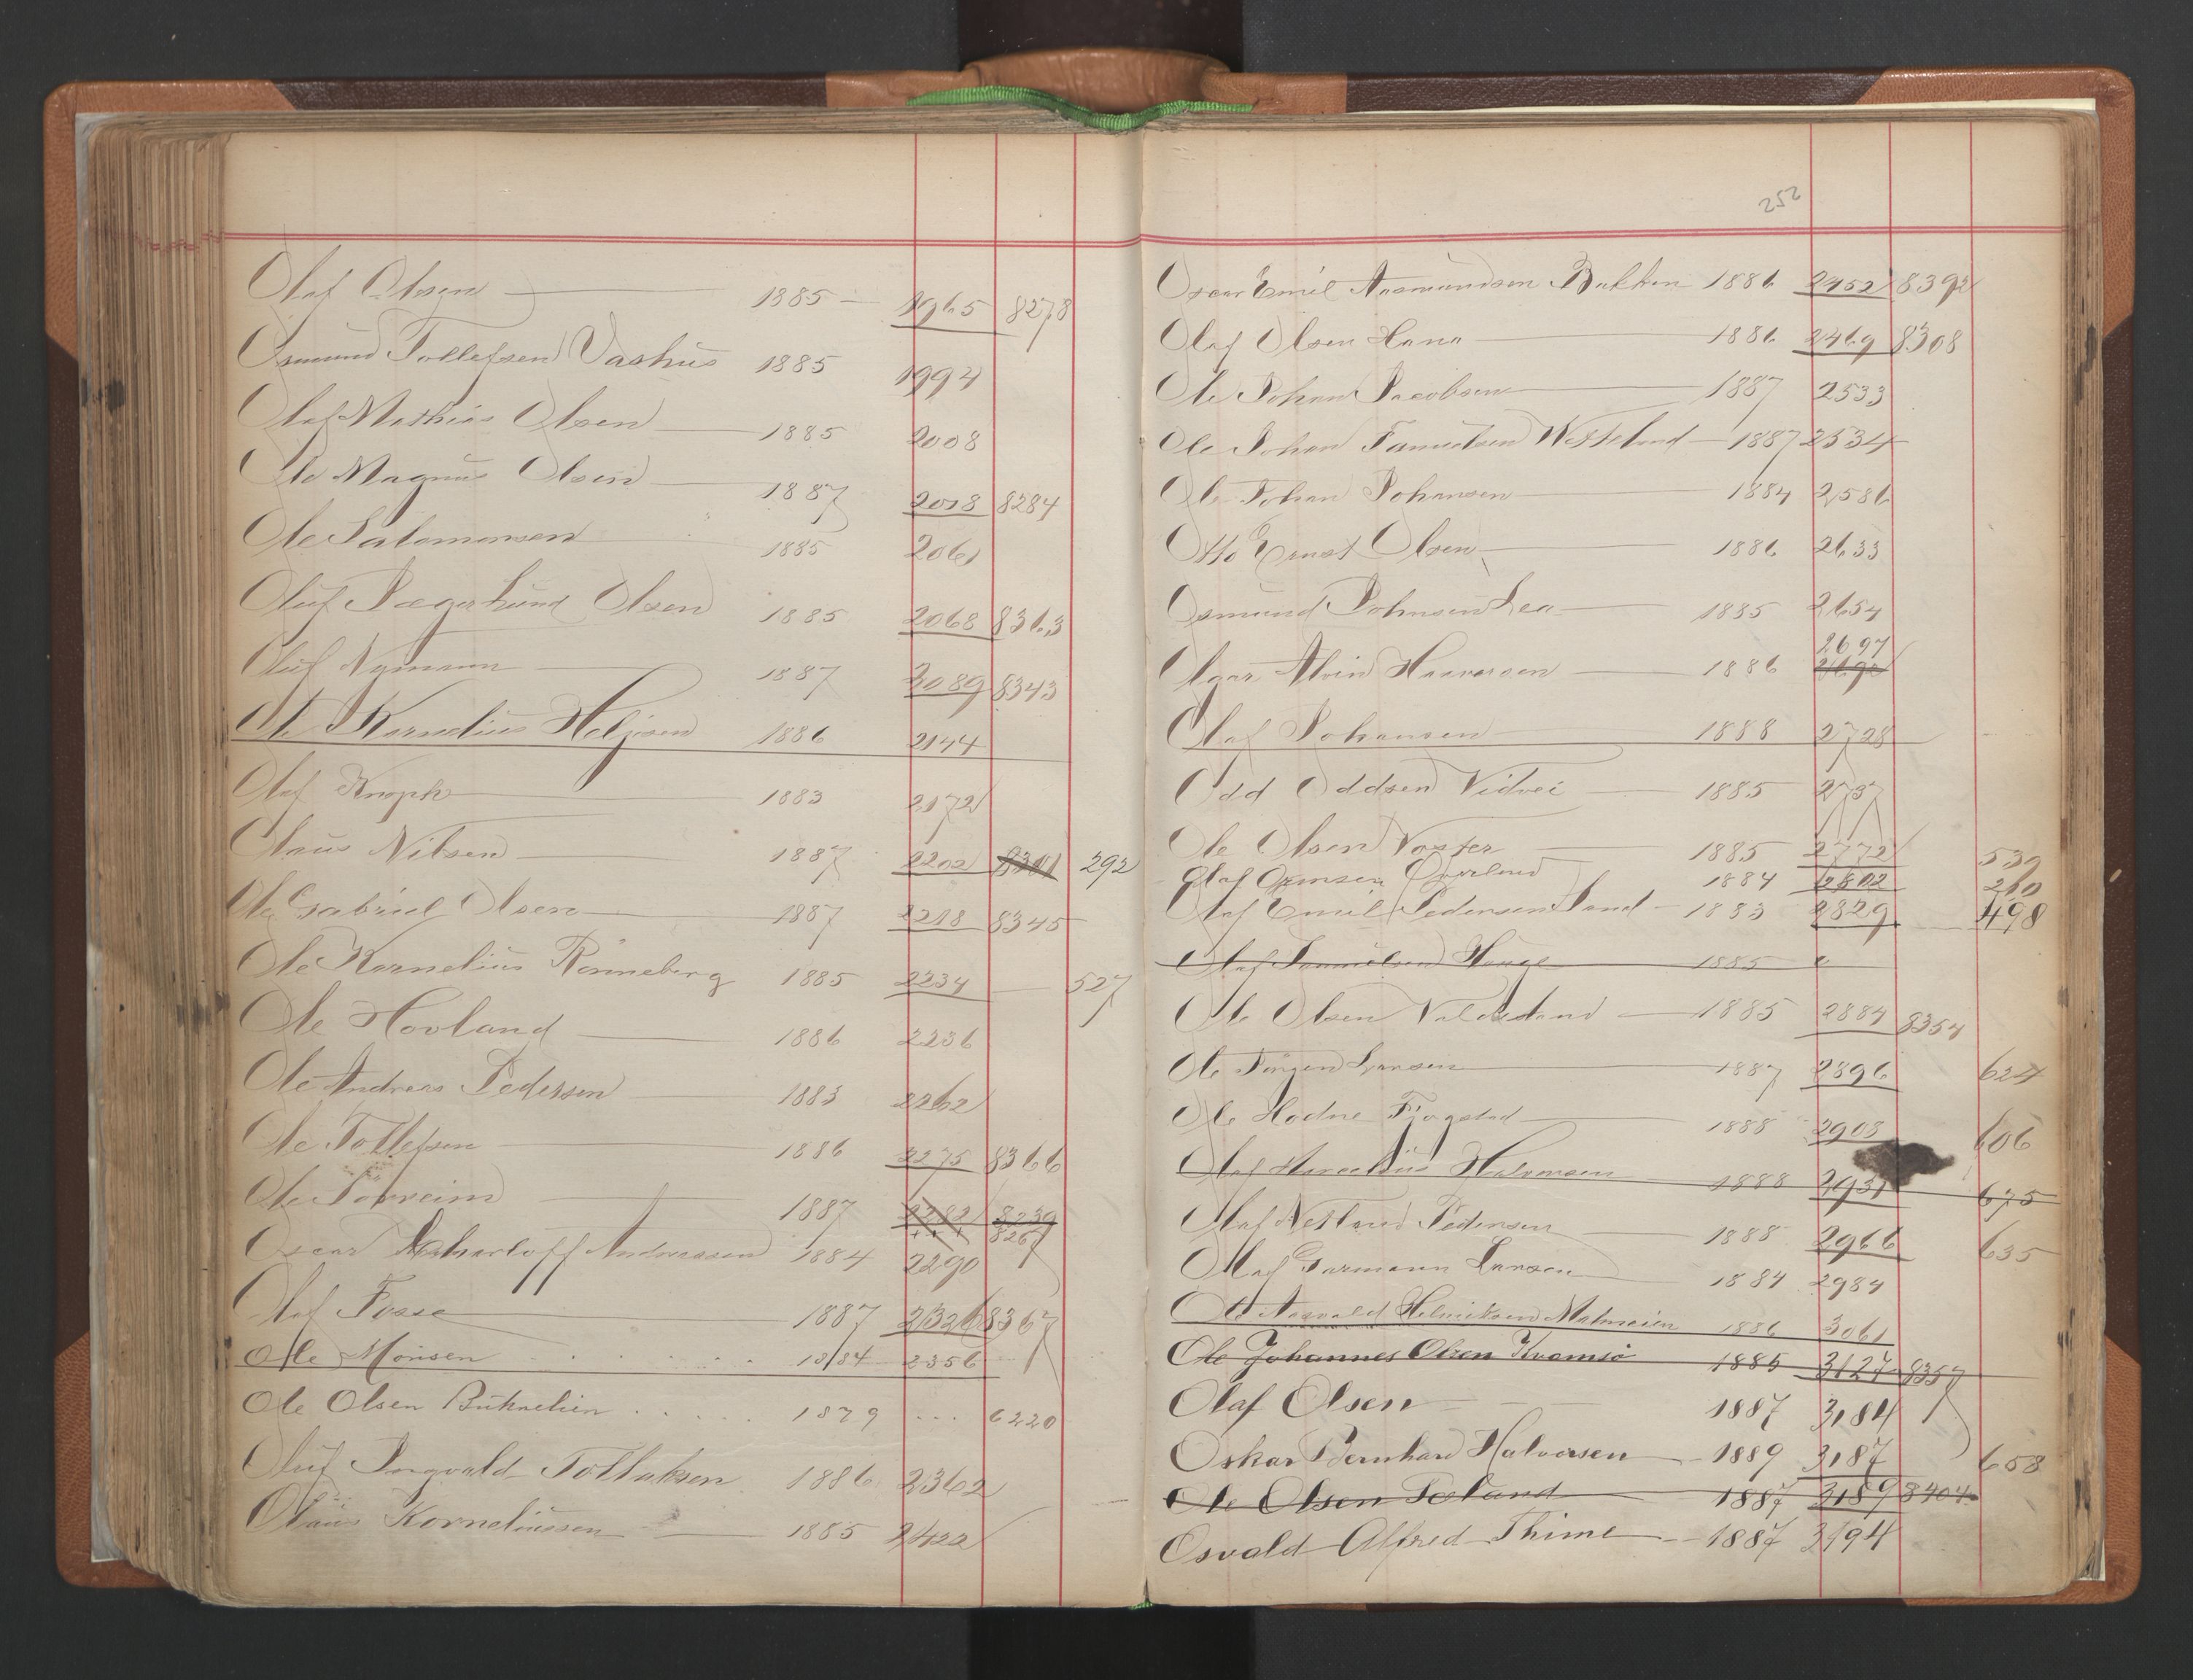 Olaf Olsen 1885 1965 8278
Osmund Tollefsen Vashus 1885 1994
Olaf Mathias Olsen 1885 2008
Ole Magnus Olsen 1887 2018 8284
Ole Salomonsen 1885 2061
Oluf Olsen 1885 2068 8363
Oluf Nymann 1887 2089 8343
Ole Kornelius Heljesen 1886 2144
Olaf Knoph 1883 2172
Olaus Nilsen 1887 2202 8301 292
Ole Gabriel Olsen 1887 2218 8345
Ole Kornelius Rönneberg 1885 2234 527
Ole Hovland 1886 2236
Ole Andreas Pedersen 1883 2262
Ole Tollefsen 1886 2275 8366
Ole Torreim 1887 2282 8239
8267
Oscar Andreassen 1884 2290
Olaf Fosse 1887 2326 8367
Ole Monsen 1884 2356
Ole Olsen 1879 6220
Oluf Ingvald Tollaksen 1886 2362
Olaus Korneliussen 1885 2422
252
Oscar Emil Aasmundsen Bakken 1886 2452 8392
Olaf Olsen Hana 1886 2469 8308
Ole Johan Jacobsen 1887 2533
Ole Johan Samuelsen Wesseland 1887 2534
Ole Johan Johansen 1884 2586
Otto Ernst Olsen 1886 2633
Osmund Johnsen Lea 1885 2654
2697
Alvin Haaversen 1886
Olaf Johansen 1888 2728
Odd Oddsen Vidvei 1885 2737
Ole Olsen Voster 1885 2772 539
Olaf Ormsen 1884 2802 260
Olaf Emil Pedersen Sand 1883 2829 498
Olaf Samuelsen Hauge 1885
Ole Olsen 1885 2884 8354
Ole Jörgen Larsen 1887 2896 624
Ole Hodne Fjogstad 1888 2903 606
Olaf Marcelius Halvorsen 1888 2931 675
Olaf Netland Pedersen 1888 2966 635
Olaf Garmann Larsen 1884 2984
Aasvald Helmiksen Malmeien 1886 3061
Ole Johannes Olsen Kvamsö 1885 3127 8357
Olaf Olsen 1887 3184
Oskar Bernhard Halvorsen 1889 3187 658
Ole Olsen 1887 3189 8404
Osvald Alfred Thime 1887 3194